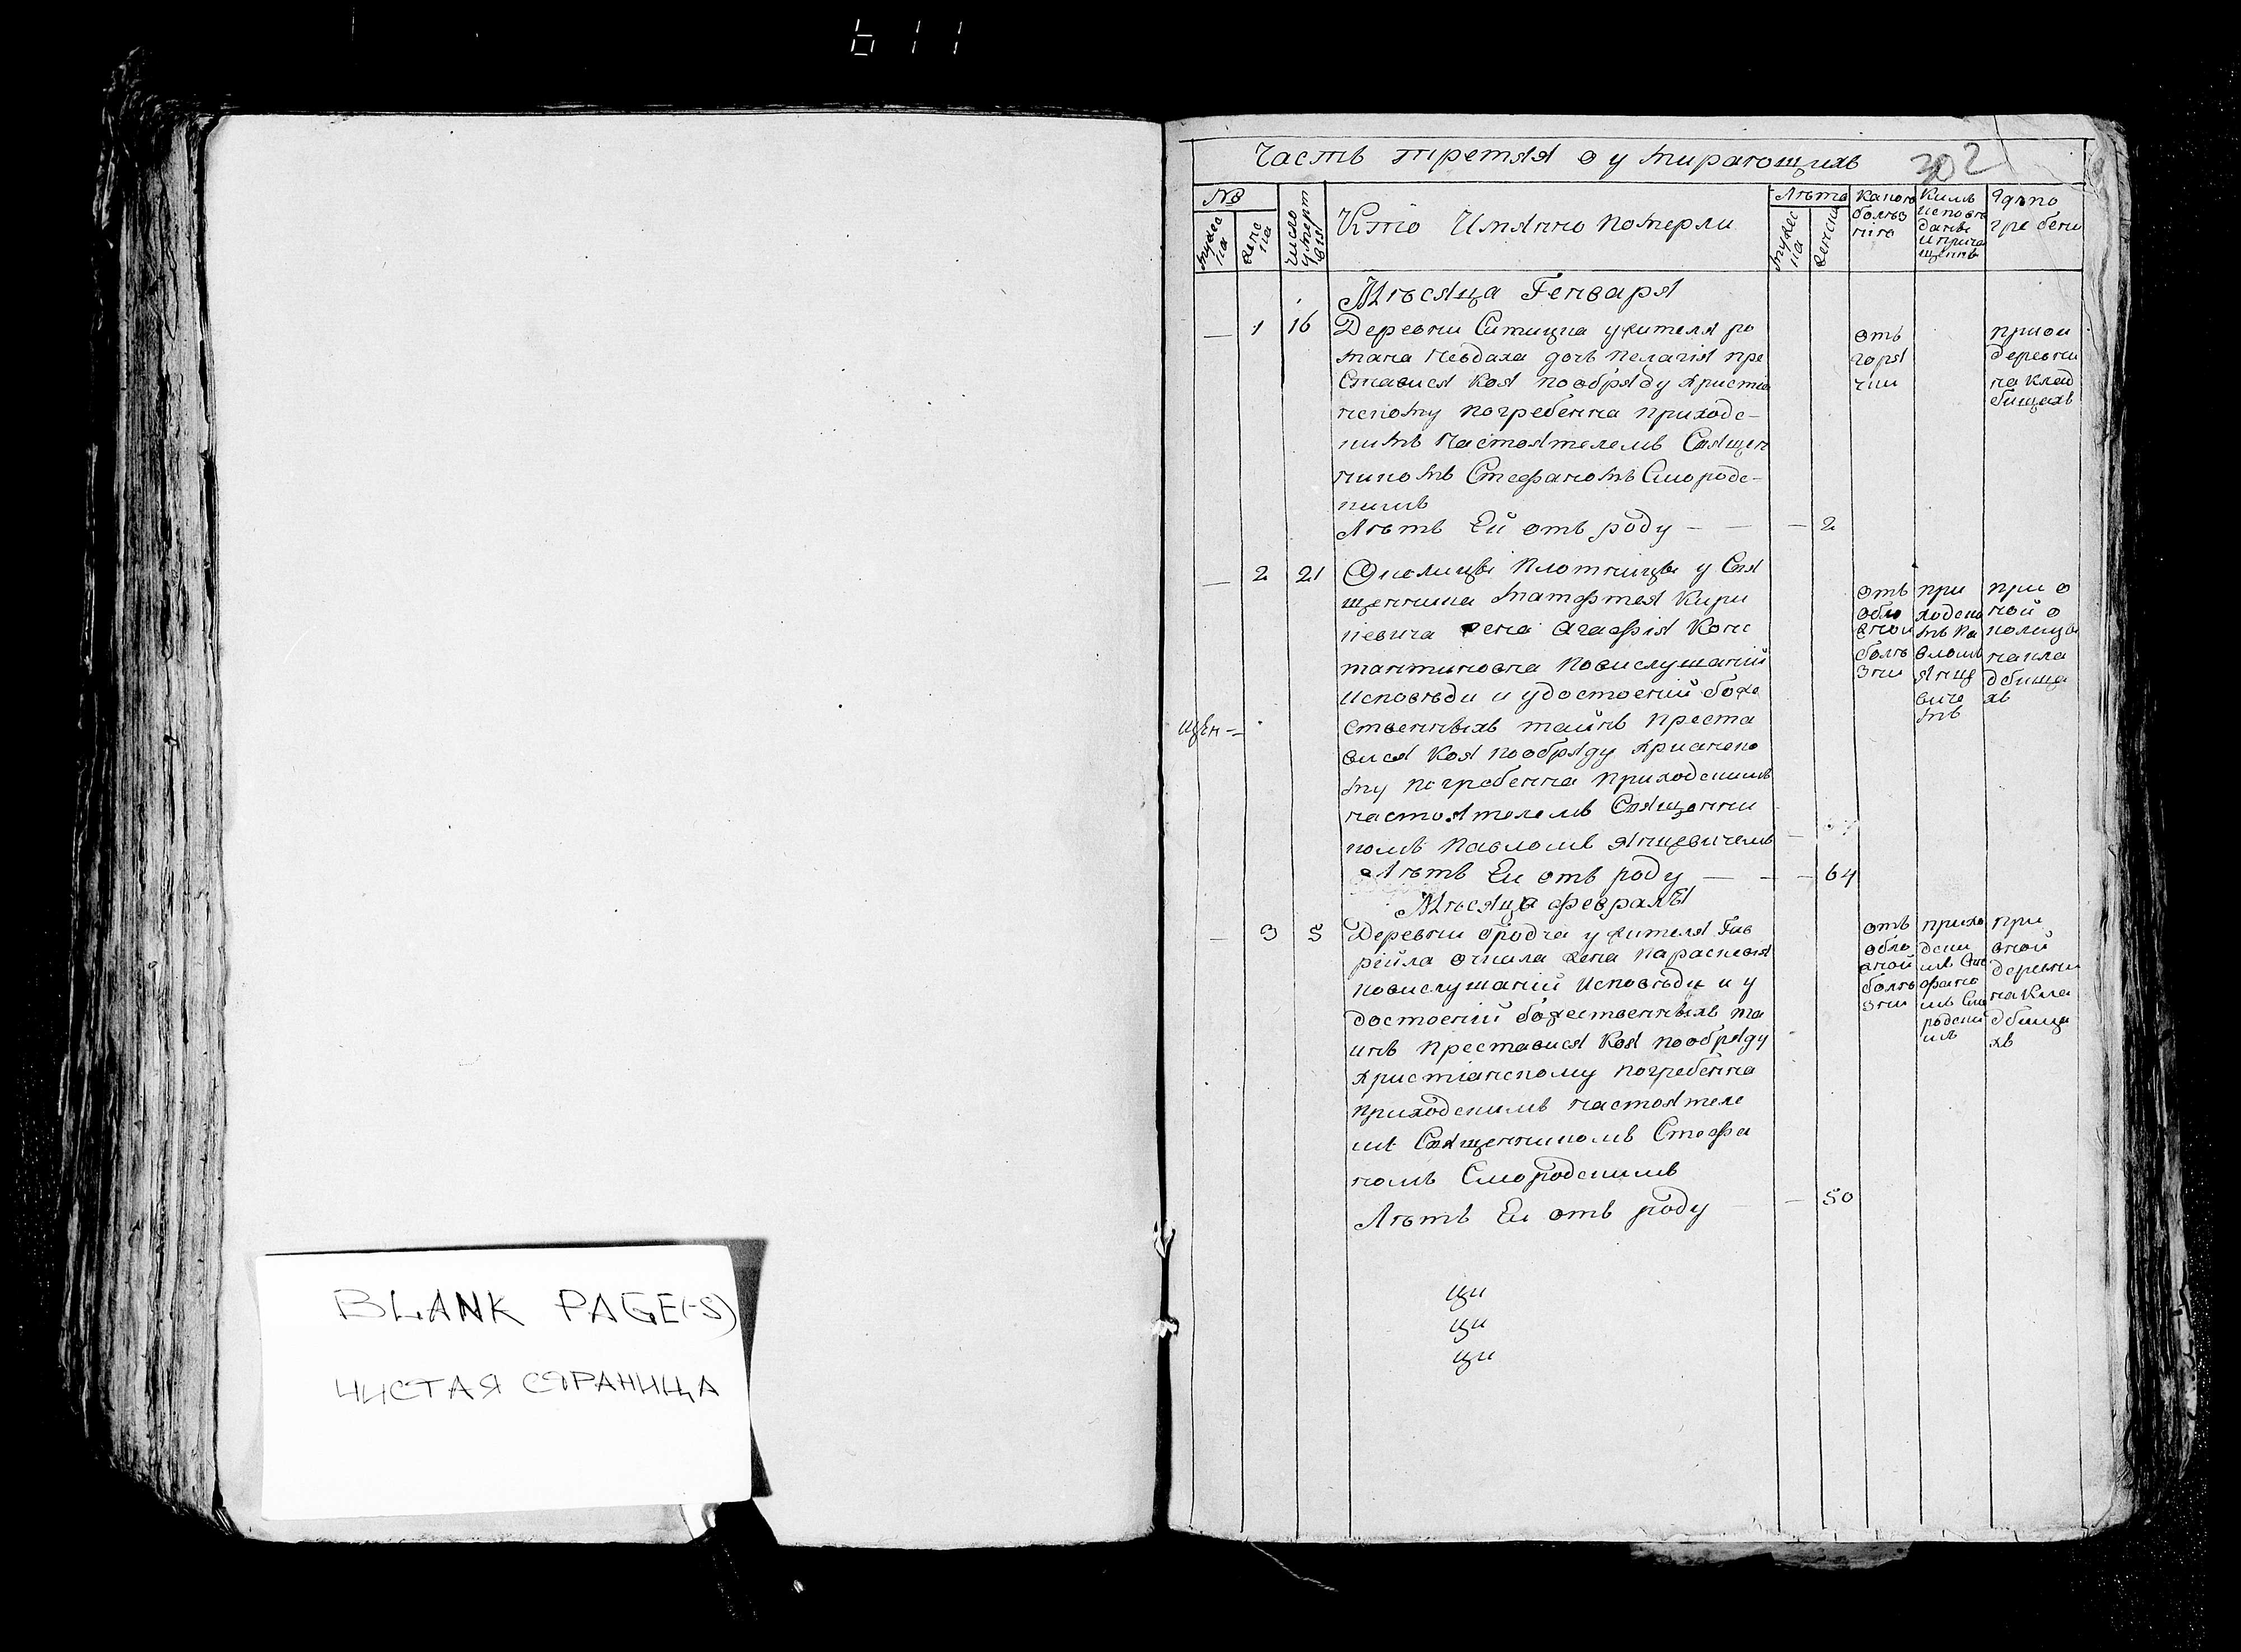 611
BLANK PAGE(-S)
ЧИСТАЯ СТРАНИЦА
Часть третяя о умирающихъ 302
№
мужес ка
женс ка
число умерт вія
Кто Имянно Померли
Лѣта
мужес ка
женска
какою болѣз нию
Кимъ исповѣ данъ и прича щеннъ
Где по гребени
Мѣсяца Генваря
— 1 16 Деревни Ситицка у жителя ро
мана Невдаха дочь Пелагія пре
ставися коя пообряду христіа
нскому погребенна приходс-
кимъ настоятелемъ Священ
никомъ Стефаномъ Смородс-
кимъ
Лѣтъ Ей отъ роду — — — 2
отъ
горя
чки
при ои
деревни
на клад
бищахъ
— 2 21 Околицы Плотницы у Свя
щенника матфтея Кири
кевича жена Агафія Конс
тантиновна Повислушаній
Исповѣди и удостоеній боже
щен-
ственныхъ тайнъ преста
вися Коя пообряду хрисанско
му погребенна приходскимъ
настоятелемъ Священни
комъ Павломъ Янщевичемъ
Лѣтъ Еи отъ роду — — — 64
отъ
обло
жной
болѣ
зни
при
ходски
мъ Па
вломъ
Янще
виче
мъ
при о
ной о
колицы
на кла
дбища
хъ
Мѣсяца февраля
— 3 5 Деревни бродча у жителя Гав
рійла жена Параскевія
Повислушаній Исповѣди и у
достоеній божественныхъ та
инъ Преставися Коя пообряду
христіанскому погребенна
приходскимъ настоятеле
мъ Священникомъ Стефа
номъ Смородскимъ
Лѣтъ Еи отъ роду — — 50
отъ
обло
жной
болѣ
зни
прихо
дски
мъ Сте
фано
мъ Смо
родски
мъ
при
оной
деревни
на кла
дбища
хъ